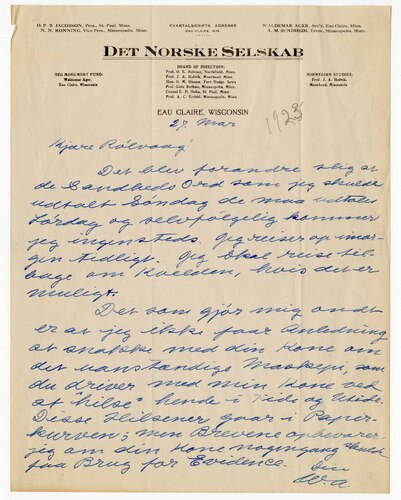 O. P. B. JACOBSON, Pres., St. Paul, Minn.
N. N. RONNING, Vice Pres., Minneapolis, Minn.
KVARTALSKRIFTS ADRESSE
EAU CLAIRE, WIS.
WALDEMAR AGER, Sec'y, Eau Claire, Minn.
A. M. SUNDHEIM, Treas., Minneapolis, Minn.
DET NORSKE SELSKAB
HEG MONUMENT FUND:
Waldemar Ager,
Eau Claire, Wisconsin
BOARD OF DIRECTORS:
Prof. O. E. Rolvaag, Northfield, Minn.
Prof. J. A. Holvik, Moorhead, Minn.
Hon. O. M. Oleson, Fort Dodge, Iowa
Prof. Gisle Bothne, Minneapolis, Minn.
Consul E. H. Hobe, St. Paul, Minn.
Prof. A. C. Erdahl, Minneapolis, Minn.
NORWEGIAN STUDIES:
Prof. J. A. Holvik,
Moorhead, Minnesota
EAU CLAIRE, WISCONSIN
27 Mar
1923
Kjære Rolvaag:
Det blev forandre slig at
de Sandheds Ord som jeg skulde
udtalt Søndag de maa udtales
Lørdag og selvfølgelig kommer
jeg ingensteds. Jeg reiser op imor-
gen tidligt. Jeg skal reise til-
bage om Kvelden, hvis det er
muligt.
Det som gjør mig ondt
er at jeg ikke faar Anledning
at snakke med din Kone om
det uanstændige Maskepi, som
du driver med min Kone ved
at "hilse" hende i Tide og Utide.
Disse Hilsener gaar i Papir-
kurven; men Brevene opbevarer
jeg om din Kone nogengang skulde
faa Brug for Evidence.
Din
W.A.